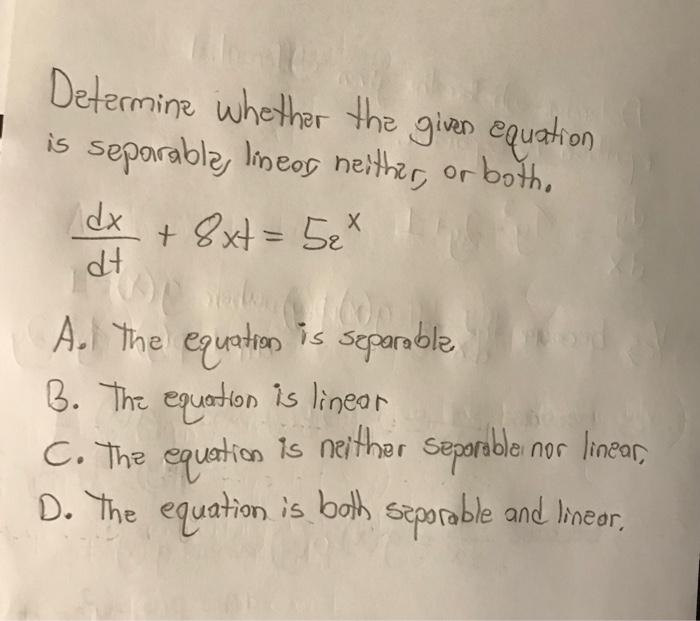 Determine whether the given equation
is separable, linear, neither, or both.
dx/dt + 8xt = 5e^x
A. The equation is separable
B. The equation is linear
C. The equation is neither separable nor linear.
D. The equation is both separable and linear.